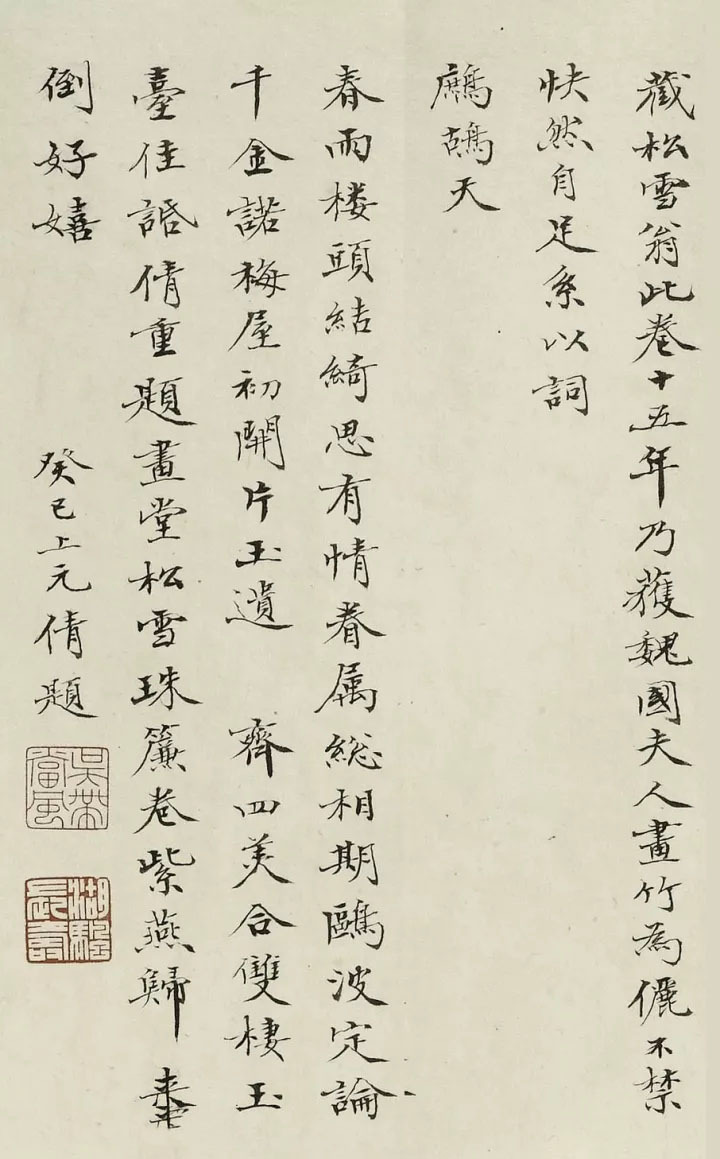 藏松雪翁此卷十五年乃獲魏國夫人畫竹為儷不禁
快然自足系以詞
鷓鴣天
春雨楼頭結綺思有情眷属総相期鷗波定論
千金諾梅屋初開片玉遺　齊四美合雙棲玉
臺佳話倩重題畫堂松雪珠簾卷紫燕歸来
倒好嬉
癸巳上元倩題
吳帶當風
湖颿長壽